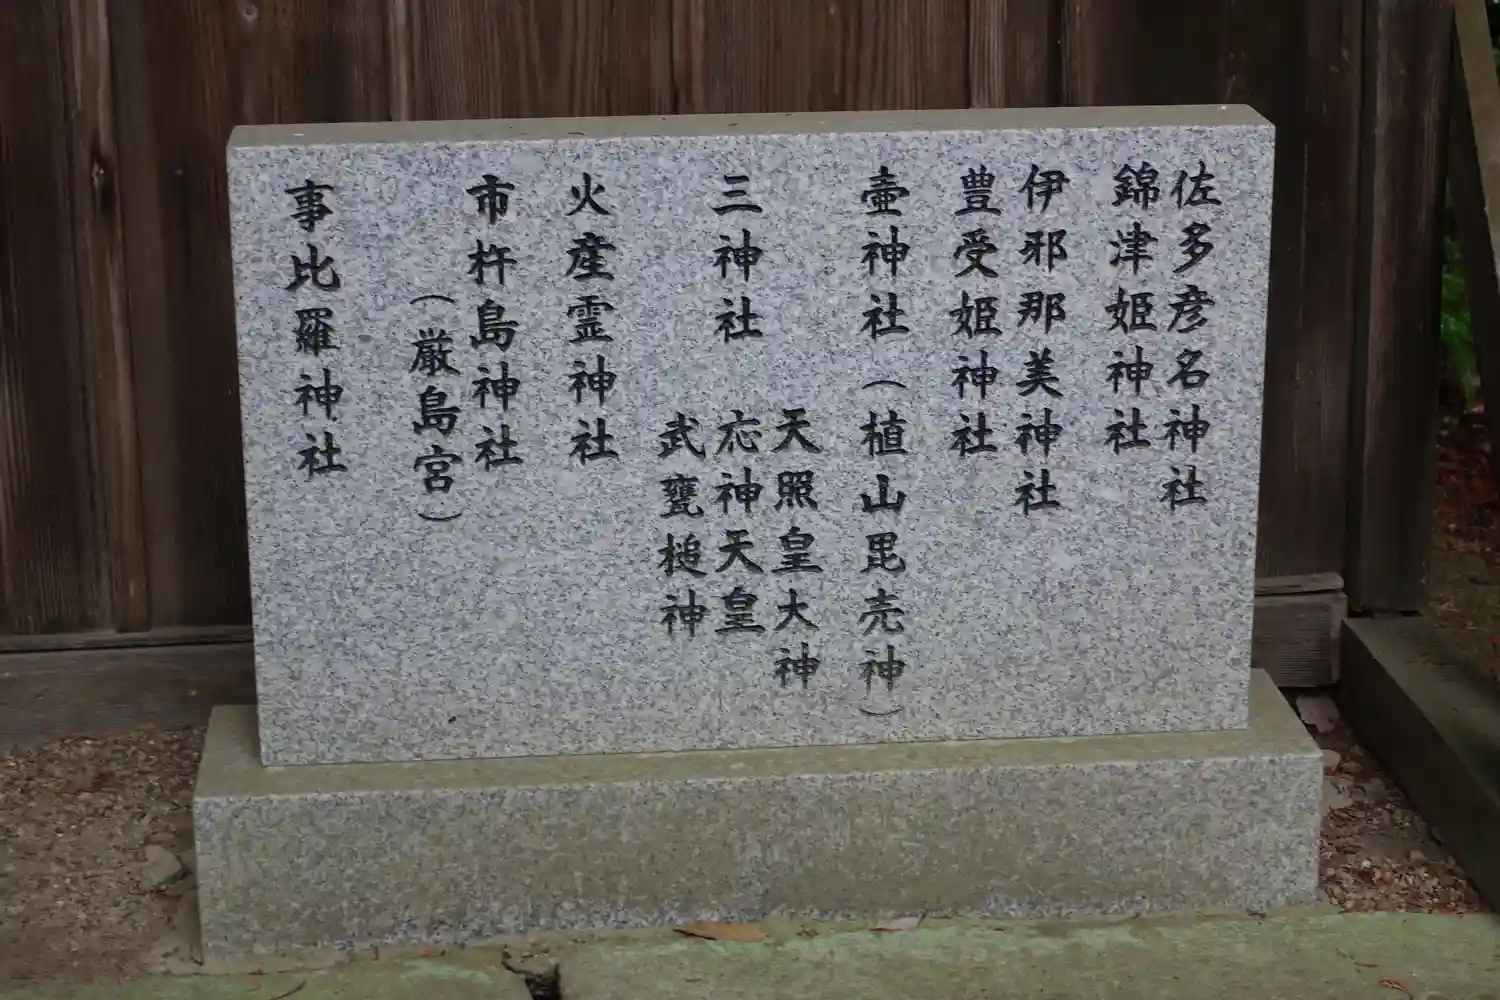 佐多彦名神社
錦津姫神社
伊邪那美神社
豊受姫神社
壷神社（植山毘売神）
三神社
天照皇大神
応神天皇
武甕槌神
火産霊神社
市杵島神社
（厳島宮）
事比羅神社